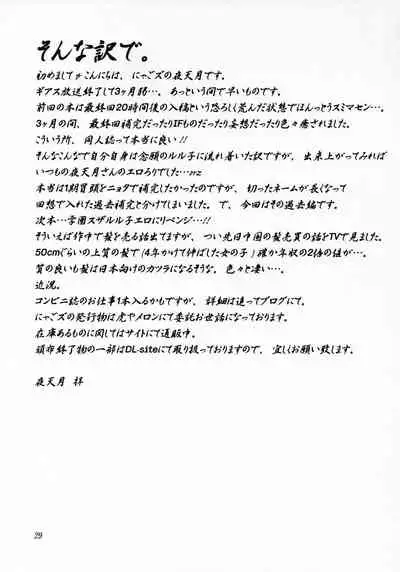 そんな訳で。
初めまして☆こんにちは、にゃごズの夜天月です。
ギアス放送終了して3ヶ月弱…。あっという間で早いものです。
前回の本は最終回20時間後の入稿という恐ろしく荒んだ状態でほんっとうスミマセン…。
3ヶ月の間、最終回補完だったりIFものだったり妄想だったり色々癒されました。
こういう所、同人誌って本当に良い!!
そんなこんなで自分自身は念願のルル子に流れ着いた訳ですが、出来上がってみれば
いつもの夜天月さんのエロろりでした…orz
本当は1期冒頭にニョタで補完したかったのですが、切ったネームが長くなって
回想で入れた過去補完と分けてしまいました。で、今回はその過去編です。
次本…学園スザルル子エロにリベンジ・・・!!
そういえば作中で髪を売る話出てますが、つい先日中国の髪売買の話をTVで見ました。
50cmぐらいの上質の髪で(4年かけて伸ばした女の子)確か年収の2倍の値が…。
質の良いも髪は日本向けのカツラになるそうな。色々と凄い…。
近況。
コンビニ誌のお仕事1本入るかもですが、詳細は追ってブログにて。
にゃごズの発行物は虎やメロンにて委託お世話になっております。
在庫あるものに関してはサイトにて通販中。
頒布終了物の一部はDL-siteにて取り扱っておりますので、宜しくお願い致します。
夜天月 祥
29